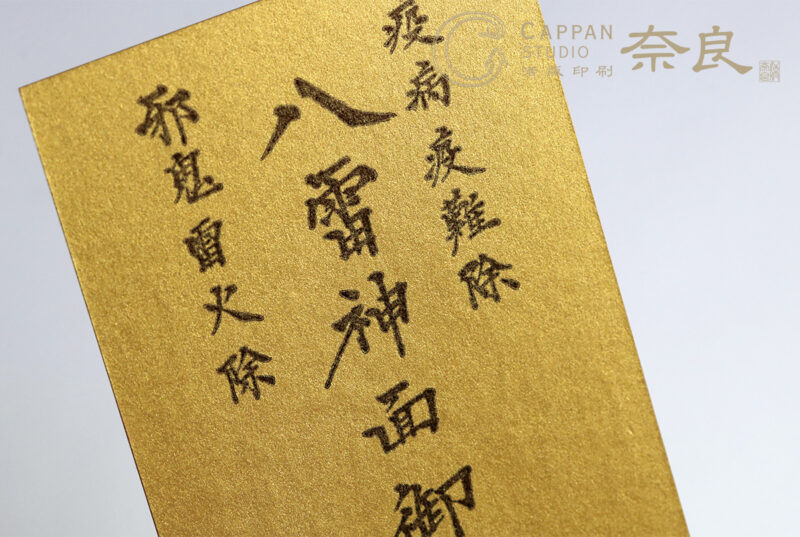 疫病疫難除
八雷神面御
邪鬼雷火除
CAPPAN
STUDIO
活版印刷
奈良